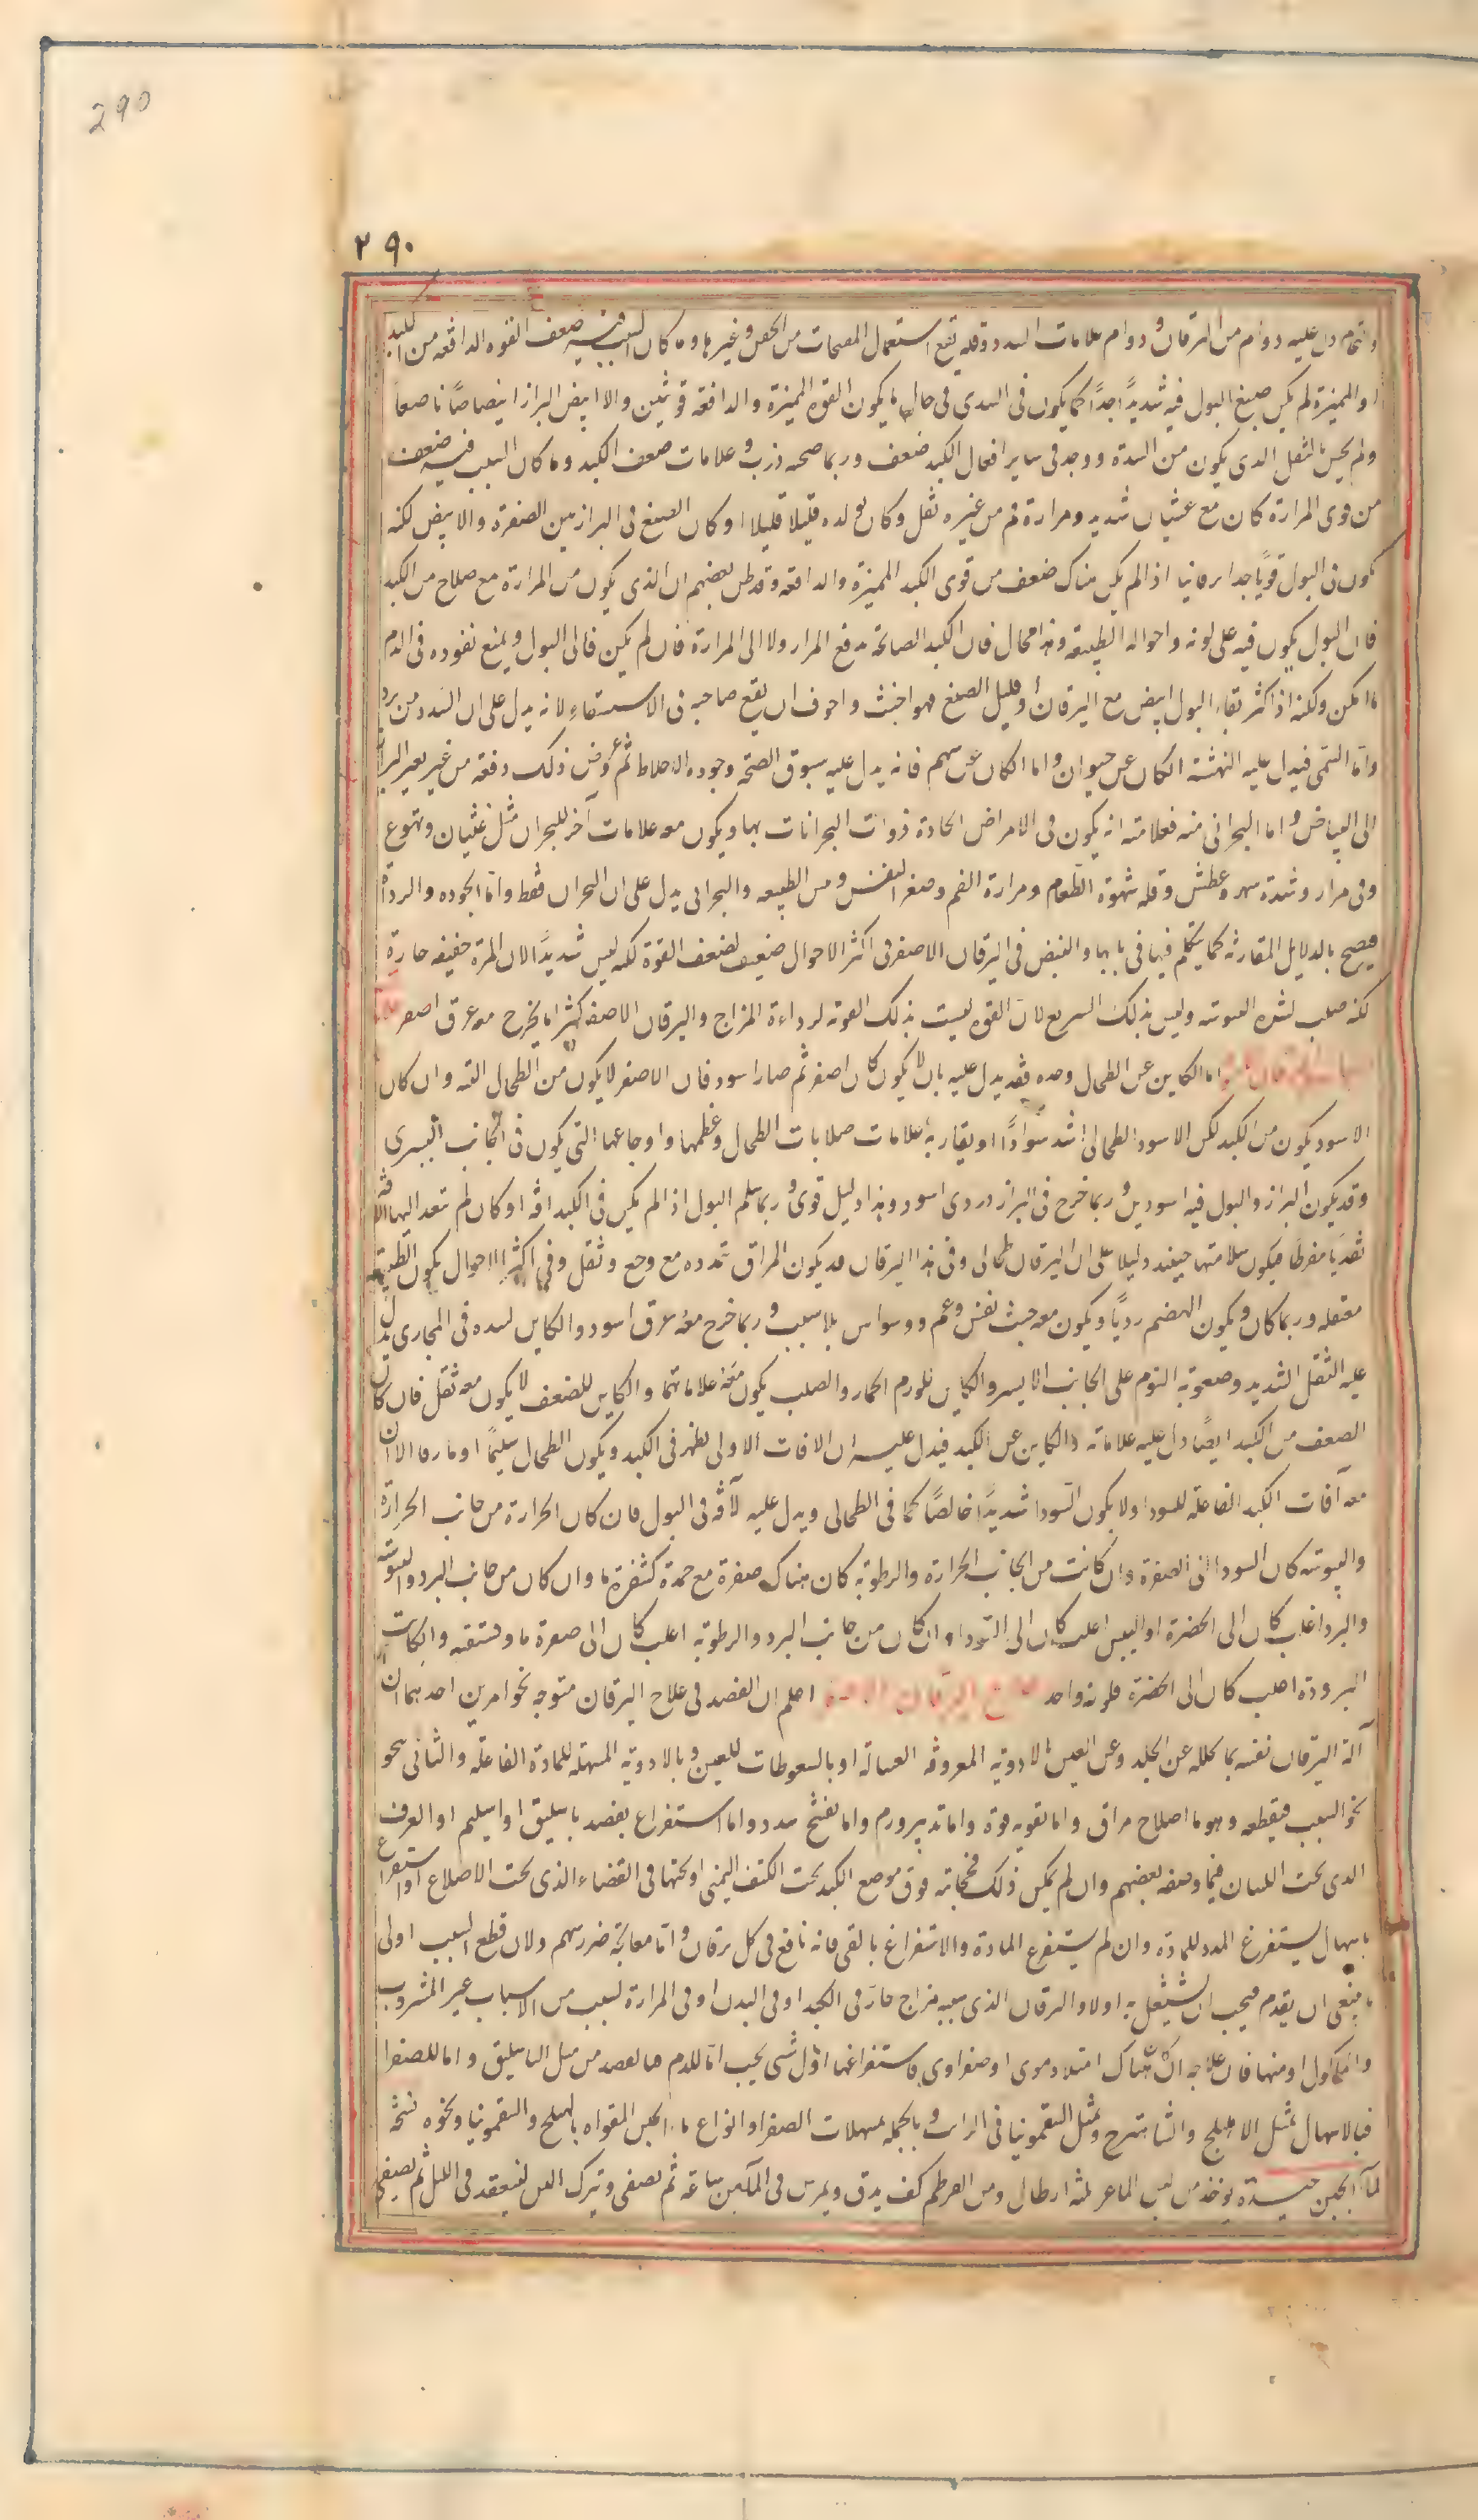 290
٢٩٠
دل عليه دوام من اليرقان ودوام علامات السدد وقلة نفع استعمال المفتحات من الحقن وغيرها وما كان السبب فيه ضعف القوه الدافعه من الكبد
او المميزة لم يكن صبغ البول فيه شديدًا جدًا كما يكون فى السدى فى حال ما يكون القوة المميزة والدافعة قويتين والا ابيض البراز ابيضاضًا ناصعا
ولم يحس بالثقل الدى يكون من السدة ووجد فى ساير افعال الكبد ضعف وربما صحبه ذرب وعلامات ضعف الكبد وما كان السبب فيه ضعف
من قوى المرارة كان مع غثيان شديد ومرارة فم من غيره ثقل وكان تولده قليلا قليلا وكان الصبغ فى البراز بين الصفرة والابيض لكنه
يكون فى البول قويًا جدا يرقانيا اذا لم يكن هناك ضعف من قوى الكبد المميزة والدافعه وقد ظن بعضهم ان الذى يكون من المرارة مع صلاح من الكبد
فان البول يكون فيه على لونه واحواله الطبيعه وهذا محال فان الكبد الصالحة تدفع المرار ولا الى المرارة فان لم يكن فالى البول ويمنع نفوده فى الدم
ما امكن ولكنه اذ اكثر بقاء البول ابيض مع اليرقان أو قليل الصبغ فهو اخبث واخوف ان يقع صاحبه فى الاستسقاء لانه يدل على ان السدد من برد
واما السمى فيدل عليه النهشة الكان عن حيوان واما الكان عن سم فانه يدل عليه سبوق الصحة وجوده الاخلاط ثم عروض ذلك دفعه من غير تغير البراز
الى البياض واما البحرانى منه فعلامته انه يكون فى الامراض الحادة ذوات البحرانات بها ويكون معه علامات آخر للبحران مثل غثيان وتهوع
وقى مرار وشدة سهر وعطش وقله شهوة الطعام ومرارة الفم وصغر النفس ويبس الطبيعه والبحرانى يدل على ان البحران فقط واما الجوده والرداة
فيصح بالدلايل المقارنه كما يتكلم فيها فى بابها والنبض فى اليرقان الاصفر فى اكثر الاحوال ضعيف لضعف القوة لكنه ليس شديدًا لان المرة خفيفه حارة
لكنه صلب لشده اليبوسه وليس بذلك السريع لان القوه ليست بذلك القوه لرداءة المزاج واليرقان الاصفر كثيرا ما يخرج معه عرق اصفر
اما الكاين عن الطحال وحده فقد يدل عليه بان لا يكون كان اصفر ثم صار اسود فان الاصفر لا يكون من الطحال البته وان كان
الاسود يكون من الكبد لكن الاسود الطحالى اشد سوادًا او يقاربه علامات صلابات الطحال وعظمها واوجاعها التى يكون فى الجانب اليسرى
وقد يكون البراز والبول فيه اسودين وربما خرج فى البراز دردى اسود وهذا دليل قوى وربما سلم البول اذا لم يكن فى الكبد افه او كان لم تتعد اليها الافه
تعديا مفرطا فيكون سلامتها حينئذ دليلا على ان اليرقان طحالى وفى هذا اليرقان قد يكون المراق تمدده مع وجع وثقل وفى اكثر الاحوال يكون الطبيعه
معتقله وربما كان ويكون الهضم رديًا ويكون معه خبث نفس وغم ووسواس بلا سبب وربما خرج معه عرق اسود والكاين لسده فى المجارى يدل
عليه الثقل الشديد وصعوبة النوم على الجانب الايسر والكاين للورم الحار والصلب يكون معه علاماتهما والكاين للضعف لا يكون معه ثقل فان كان
الضعف من الكبد ايضًا دل عليه علاماته والكاين عن الكبد فيدل عليه ان الافات الاولى تظهر فى الكبد ويكون الطحال سليمًا او ماروفا الا ان
معه آفات الكبد الفاعله للسودا ولا يكون السودا شديدًا خالصًا كما فى الطحالى ويدل عليه لافة فى البول فان كان الحرارة من جانب الحرارة
واليبوسه كان السودا الى الصفرة وان كانت من الجانب الحرارة والرطوبة كان هناك صفرة مع حمرة كشفرة ما وان كان من جانب البرد واليبوسه
والبرد اغلب كان الى الخضرة او اليبس اغلب كان الى السودا وان كان من جانب البرد والرطوبة اغلب كان الى صفرة ما وفستقيه وان كانت
البرودة اغلب كان الى الخضرة فلونه واحد علاج اليرقان الاصفر اعلم ان القصد فى علاج اليرقان متوجه نحو امرين احدهما ان
آلة اليرقان نفسه بما يحلله عن الجلد وعن العين بالادويه المعروفه الغساله او بالسعوطات للعين وبالادوية المسهله للمادة الفاعله والثانى نحو
نحو السبب فيقطعه وهو ما اصلاح مراق واما تقويه قوة واما تدبير ورم واما تفتح سدد واما استفراغ بفصد باسليق او اسيلم او العرق
الدى تحت اللسان فيما وصفه بعضهم وان لم يمكن ذلك فحجامة فوق موضع الكبد تحت الكتف اليمنى او تحتها فى القضاء الذى تحت الاضلاع او استفراغ
باسهال يستفرغ المدد للمادة وان لم يستفرغ المادة والاستفراغ بالقى فانه نافع فى كل يرقان واما معالجة ضرر سهم ولان قطع السبب اولى
ما ينبغى ان يقدم فيجب ان يشتغل به اولا واليرقان الذى سببه مزاج حار فى الكبد او فى البدن او فى المرارة لسبب من الاسباب غير المشروب
والماكول او منها فان علاجه ان كان هناك امتلا دموى او صفراوى فاستفراغهما اول شى يجب اما للدم فبالفصد من مثل الباسليق واما للصفرا
فبالاسهال بمثل الاهليلج والشاهترج وبمثل السقمونيا فى الراب وبالجمله بمسهلات الصفرا وانواع ماء الجبن المقواه بالهليلج والسقمونيا ونحوه نسخة
لماء الجبن جيدة يوخذ من لبن الماعز ثلثه ارطال ومن القرطم كف يدق ويمرس فى الماكبن ساعة ثم يصفى ويترك اللبن لينعقد فى الليل ثم يصفى